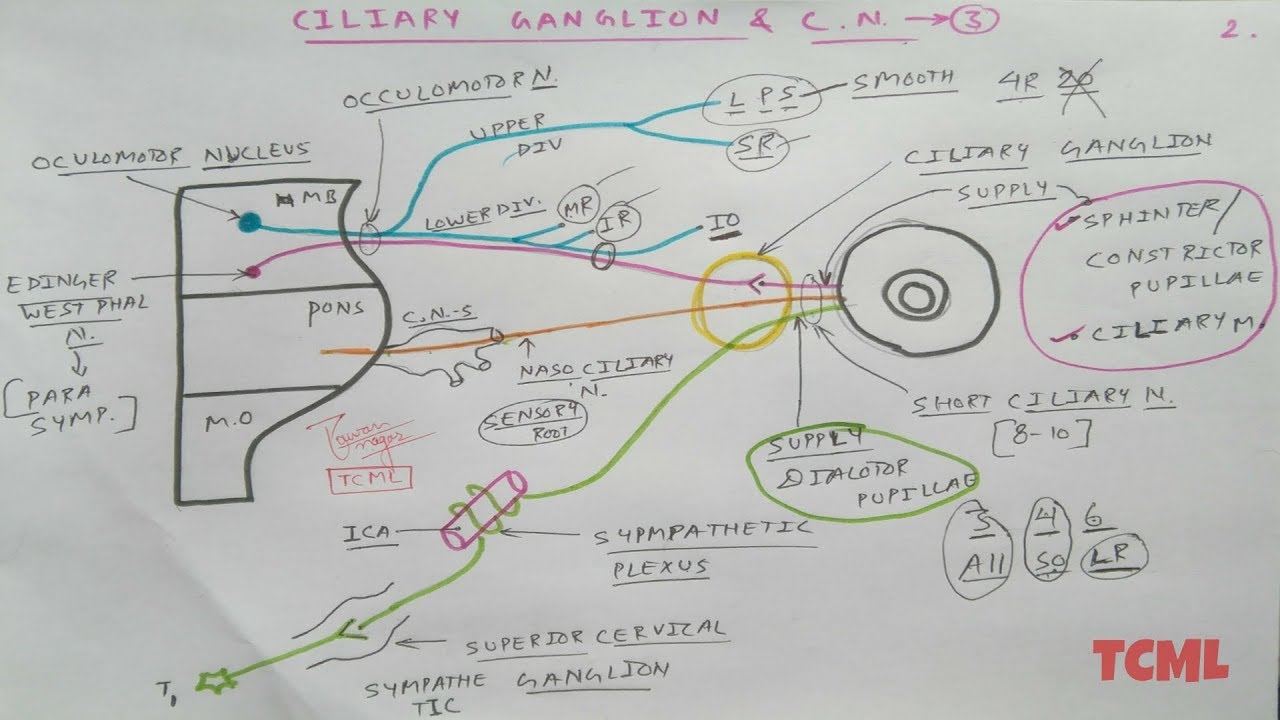 CILIARY GANGLION & C.N. → 3
2.
OCCULOMOTOR N.
LPS SMOOTH 4R 20
UPPER
DIV
SR
OCULOMOTOR NUCLEUS
CILIARY GANGLION
SUPPLY
MB
LOWER DIV.
MR
IR
IO
SPHINTER/
CONSTRICTOR
PUPILLAE
CILIARY M.
EDINGER
WEST PHAL
N.
[PARA
SYMP.]
PONS
C.N-5
NASO CILIARY
N.
SENSORY
ROOT
M.O
TCML
SHORT CILIARY N.
[8-10]
SUPPLY
DIALOTOR
PUPILLAE
ICA
SYPMPATHETIC
PLEXUS
3 4 6
All SO LR
SUPERIOR CERVICAL
SYMPATHE GANGLION
TIC
T1
TCML